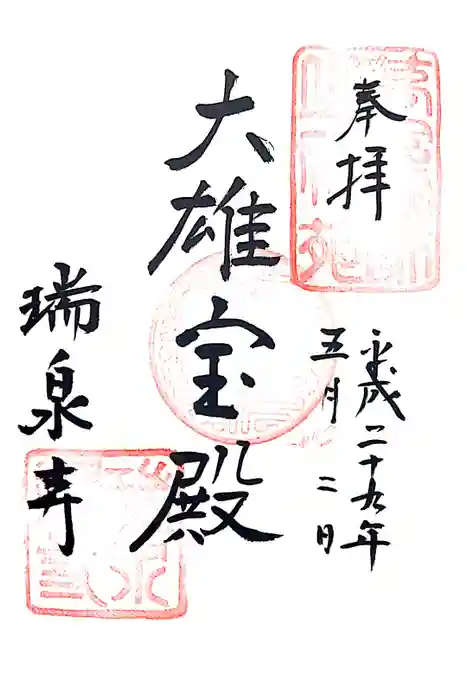 奉拝
平成二十九年
五月二日
大雄宝殿
瑞泉寺